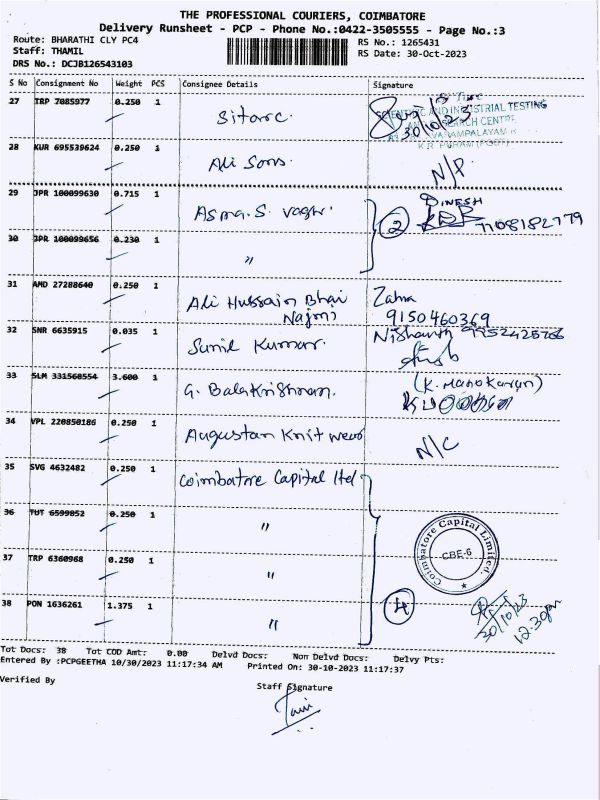 THE PROFESSIONAL COURIERS, COIMBATORE
Delivery Runsheet - PCP - Phone No.:0422-3505555 - Page No.:3
Route: BHARATHI CLY PC4
RS No.: 1265431
Staff: THAMIL
RS Date: 30-Oct-2023
DRS No.: DCJB126543103
S No Consignment No Weight PCS Consignee Details Signature
27 TRP 7085977 0.250 1 Sitarc.
SCIENTIFIC AND INDUSTRIAL TESTING
AND RESEARCH CENTRE
30/10/23
28 KUR 695539624 0.250 1 Ali Sons. N/P.
29 JPR 100099630 0.715 1 Asma.S. vaghr. 2 DINESH
7708182779
30 JPR 100099656 0.230 1 "
31 AMD 27288640 0.250 1 Ali Hussain Bhai Zahra
Najmi 9150460369
32 SNR 6635915 0.035 1 Sunil Kumar. Nishanth 9952425766
33 SLM 331560554 3.600 1 G. Balakrishnan. (K. Manokaran)
34 VPL 220850186 0.250 1 Augustan Knit wear N/C
35 SVG 4632482 0.250 1 Coimbatore Capital ltd
36 TUT 6599852 0.250 1 "
Coimbatore Capital Limited.
CBE-6
37 TRP 6360968 0.250 1 "
38 PON 1636261 1.375 1 " 4
30/10/23
12.30pm
Tot Docs: 38 Tot COD Amt: 0.00 Delvd Docs: Non Delvd Docs: Delvy Pts:
Entered By :PCPGEETHA 10/30/2023 11:17:34 AM Printed On: 30-10-2023 11:17:37
Verified By
Staff Signature